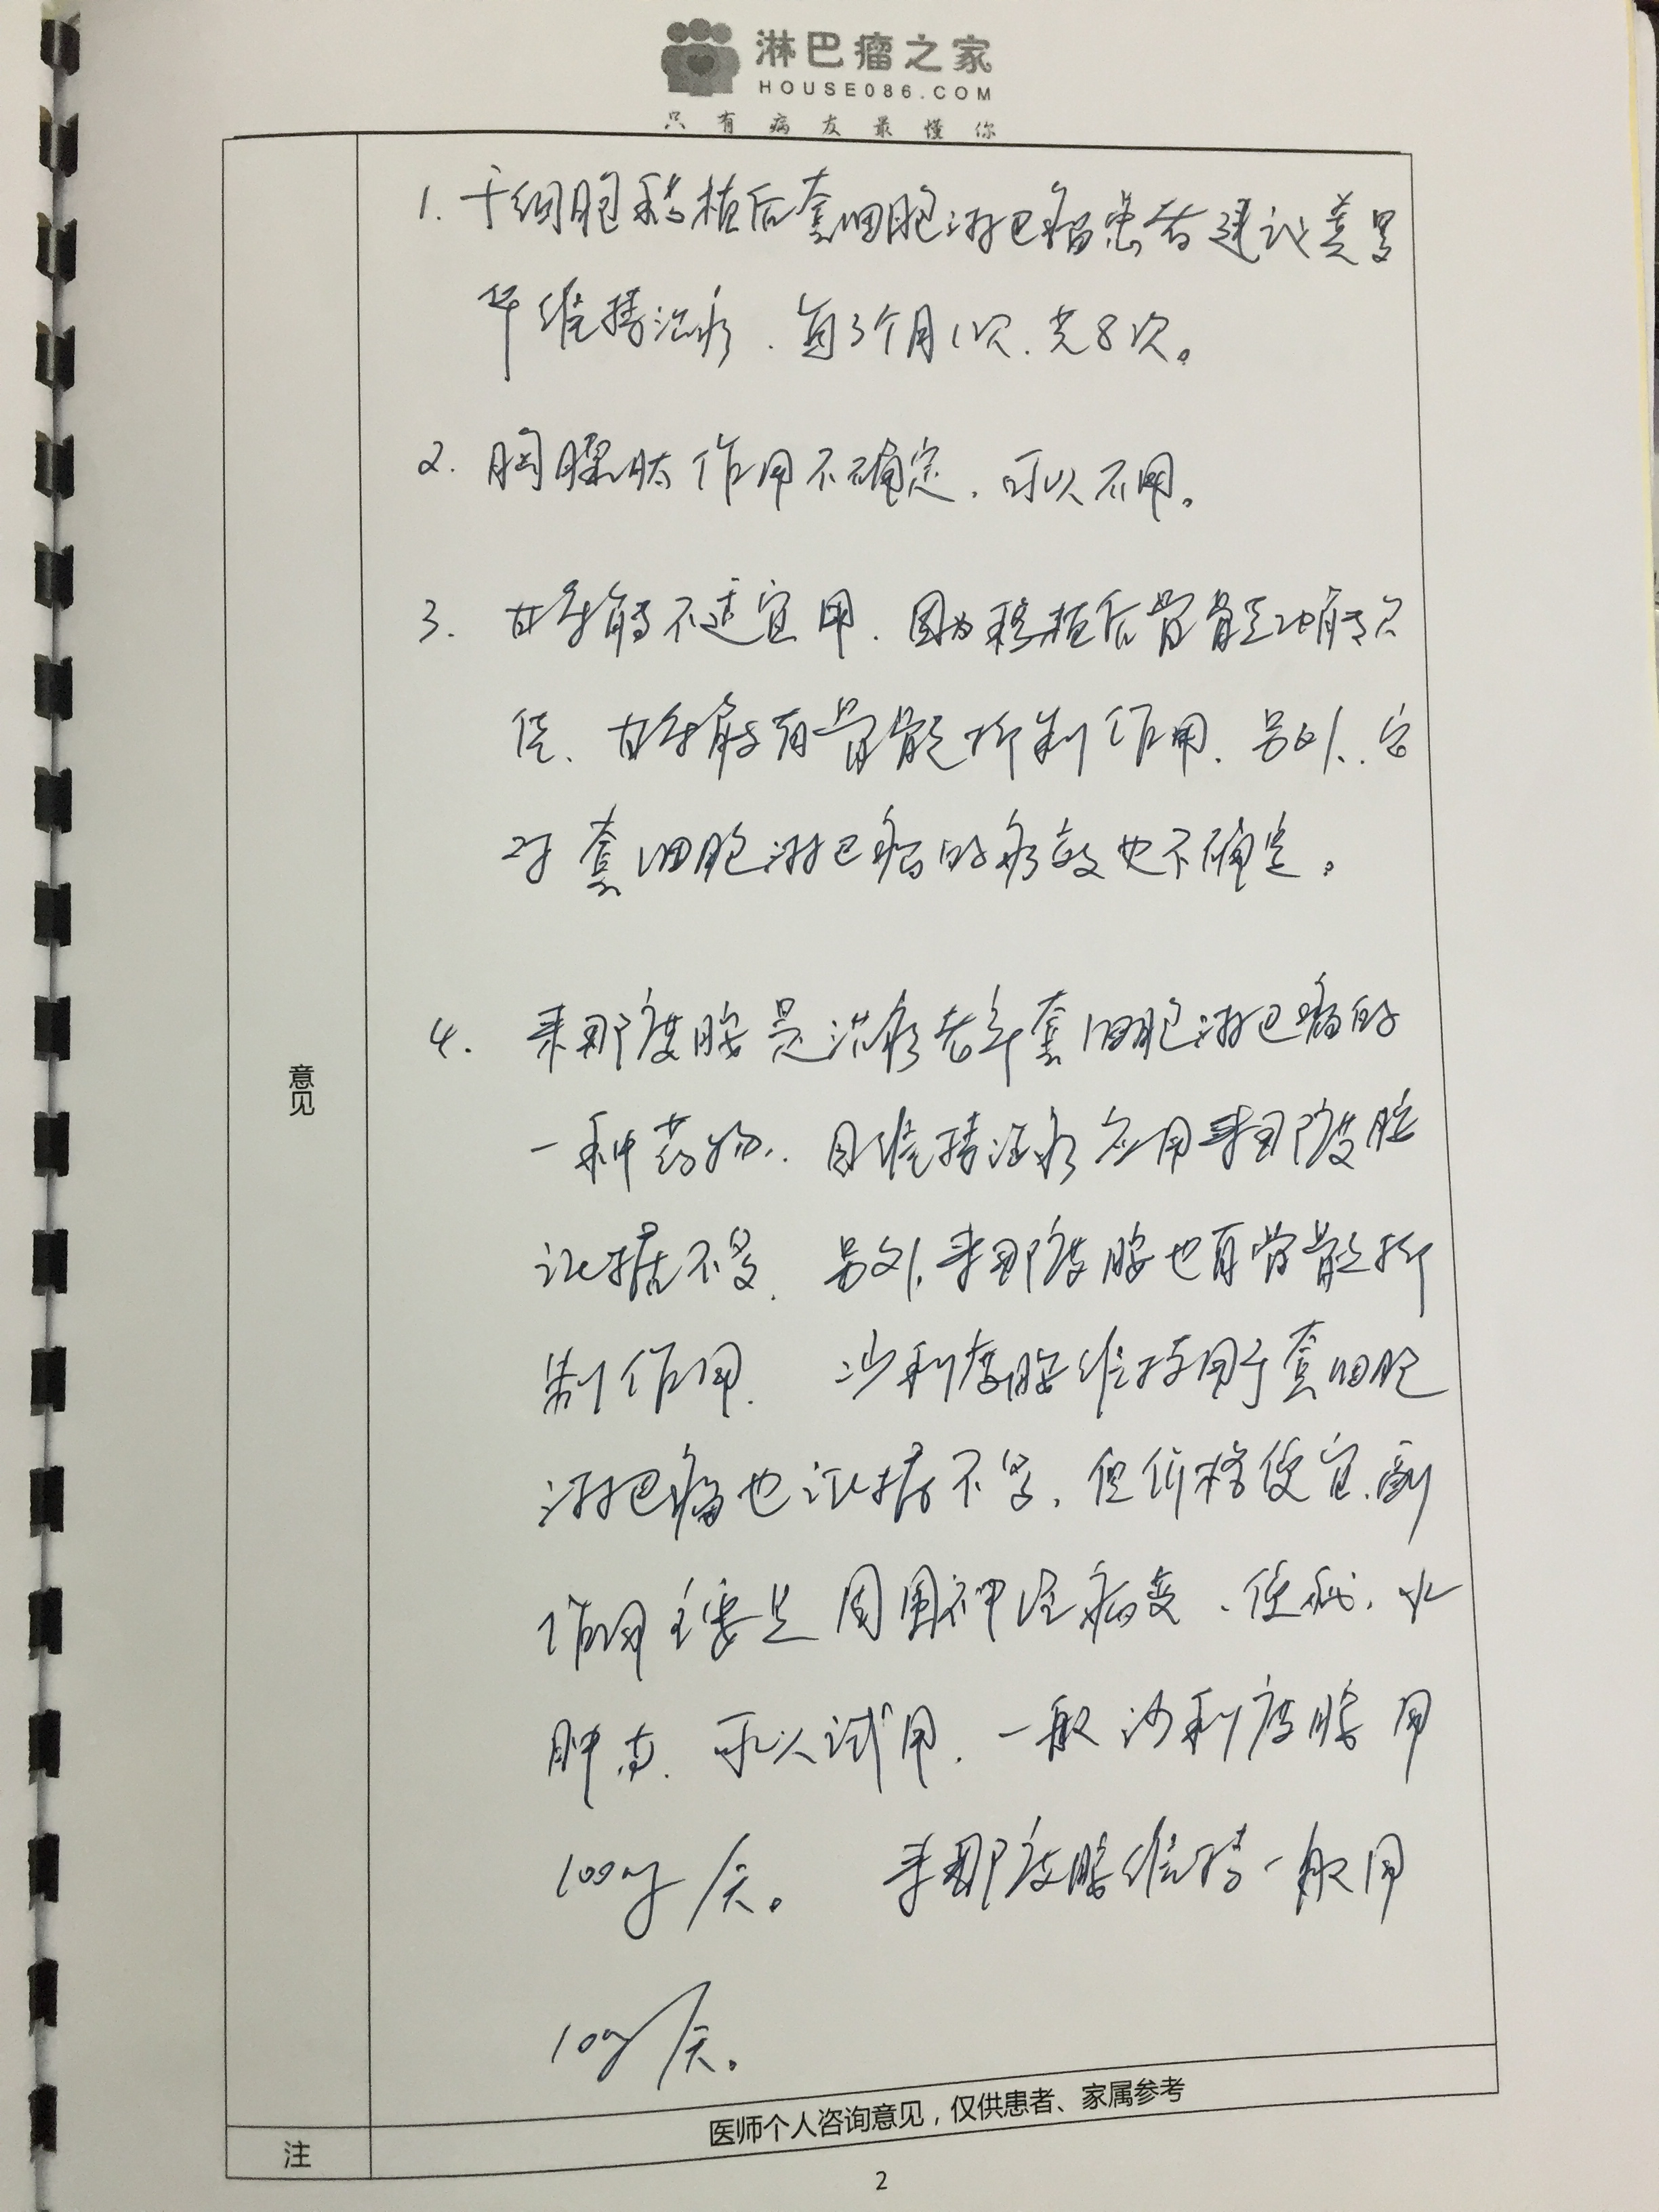 淋巴瘤之家
HOUSE086.COM
只有病友最懂你
1. 干细胞移植后套细胞淋巴瘤患者建议美罗
华维持治疗，每3个月1次，共8次。
2. 胸腺肽作用不确定，可以不用。
3. 干扰能不适宜用，因为移植后骨髓功能不
佳，有骨髓抑制作用，另外，它
对套细胞淋巴瘤的疗效也不确定。
意见
4. 来那度胺是治疗老年套细胞淋巴瘤的
一种药物，但维持治疗应用来那度胺
证据不多，另外，来那度胺也有骨髓抑
制作用，沙利度胺维持用于套细胞
淋巴瘤也证据不多，但价格便宜，副
作用主要是周围神经病变、便秘、水
肿等，可以试用，一般沙利度胺用
100mg/天。来那度胺维持一般用
10mg/天。
注
医师个人咨询意见，仅供患者、家属参考
2